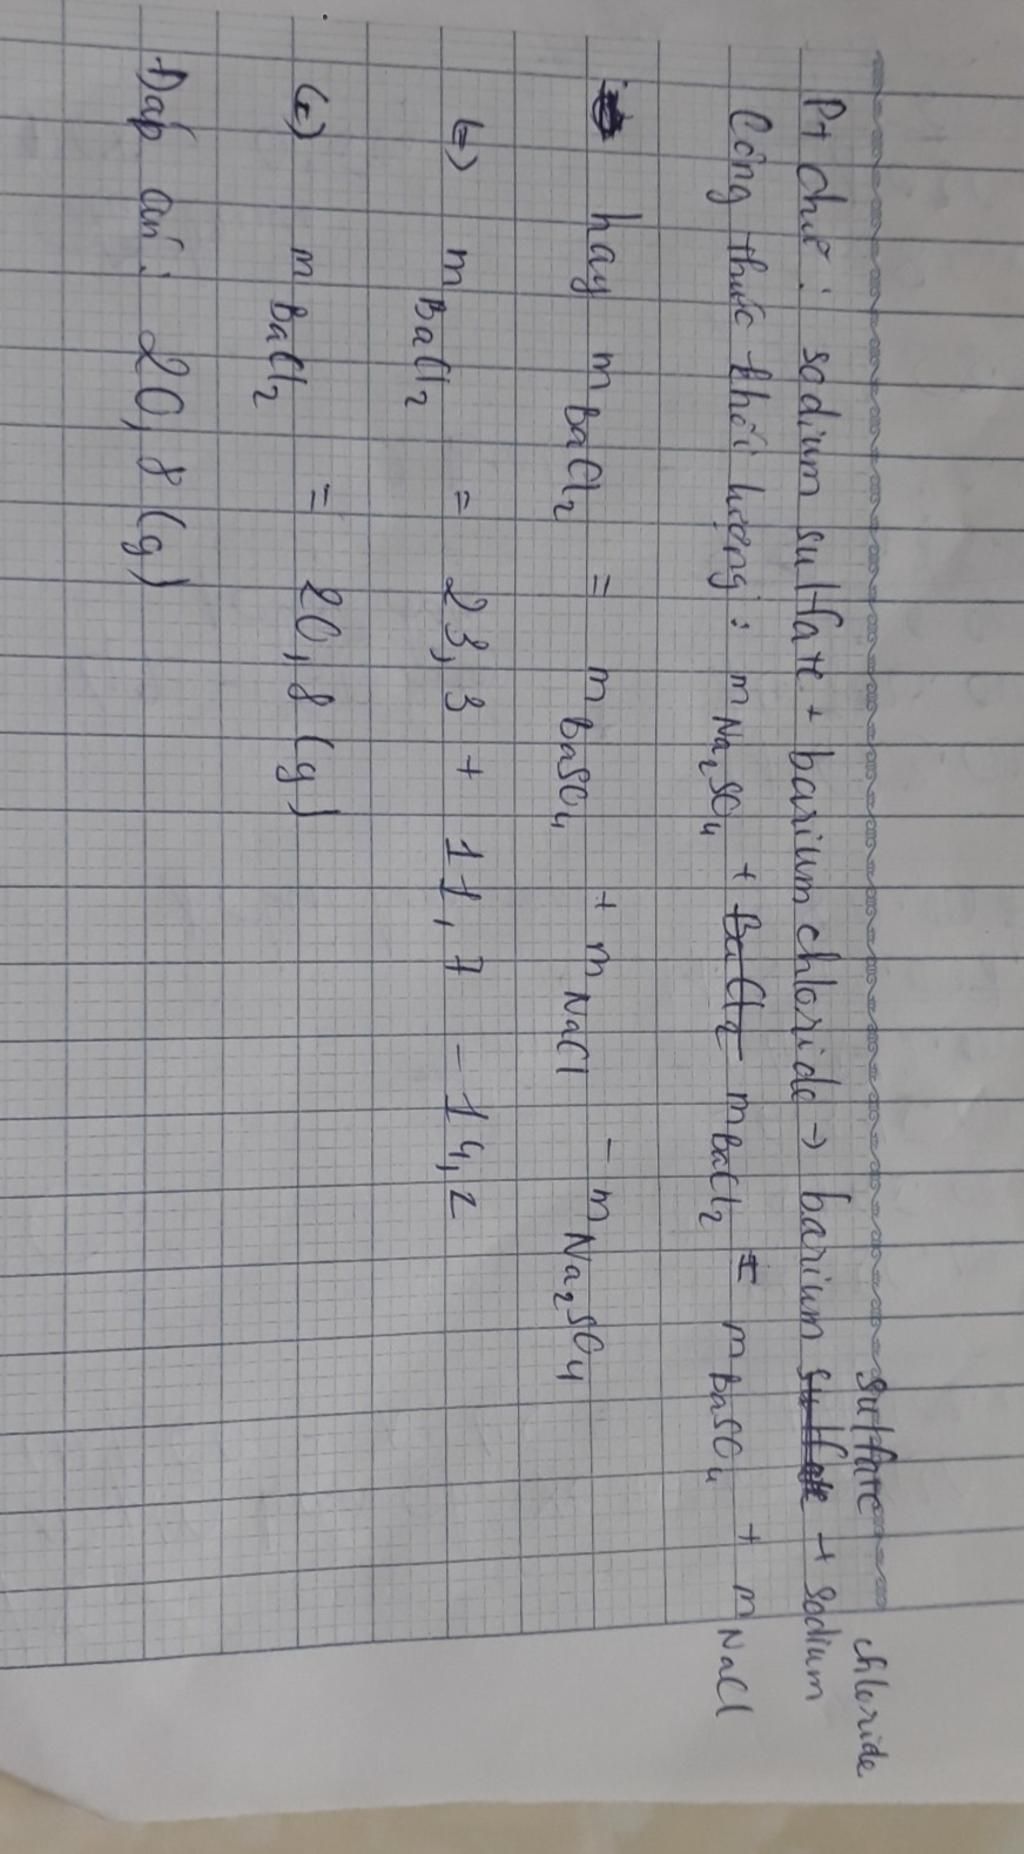 Pt chữ : sodium sulfate + barium chloride → barium sulfate + sodium chloride
Công thức khối lượng : m Na₂SO₄ + m BaCl₂ = m BaSO₄ + m NaCl
hay m BaCl₂ = m BaSO₄ + m NaCl - m Na₂SO₄
(=) m BaCl₂ = 23,3 + 11,7 - 14,2
(=) m BaCl₂ = 20,8 (g)
Đáp án : 20,8 (g)